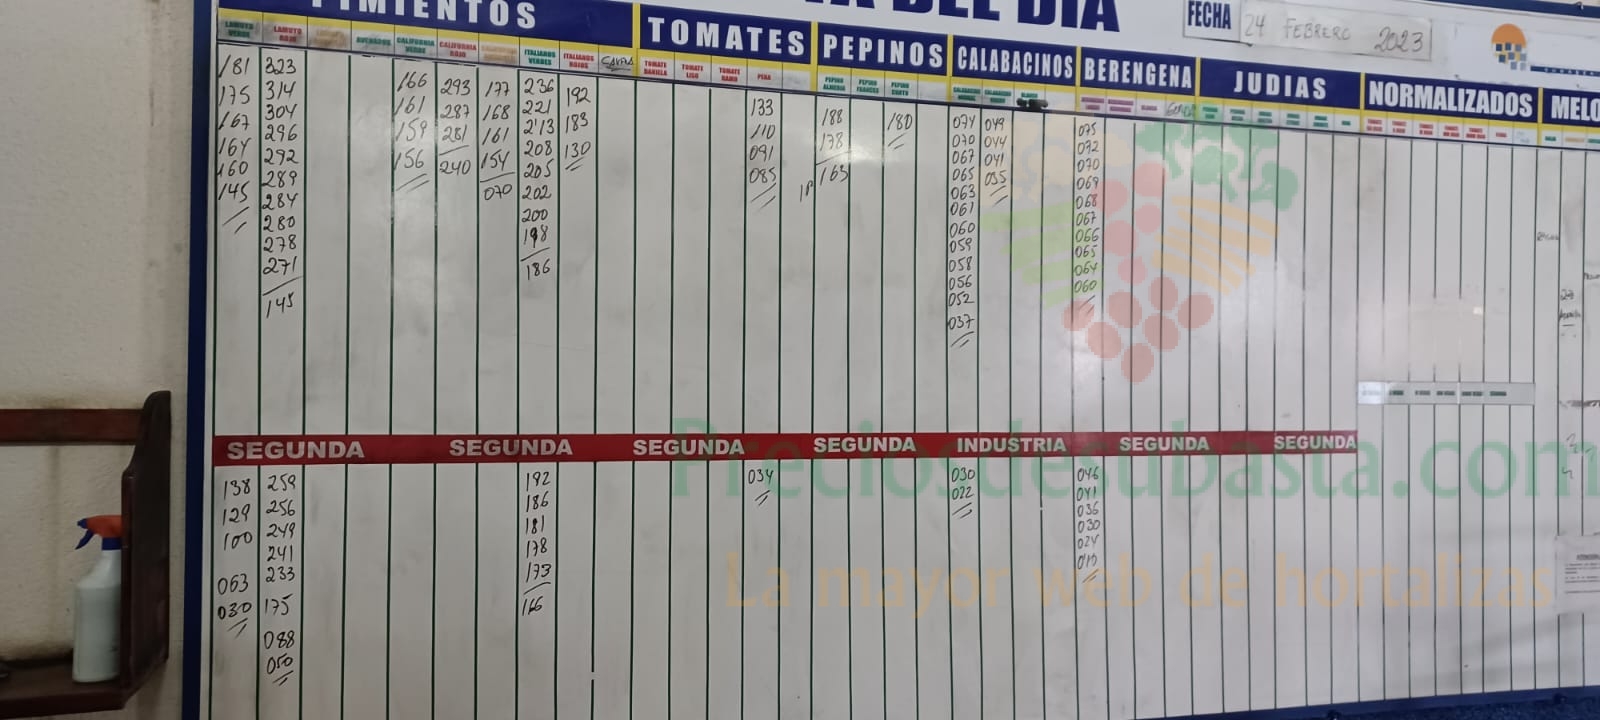 PIMIENTOS
DEL DIA
FECHA 24 FEBRERO 2023
TOMATES
PEPINOS
CALABACINOS
BERENGENA
JUDIAS
NORMALIZADOS
MELO
LAMUYO VERDE
181
175
167
164
160
145
LAMUYO ROJO
323
314
304
296
292
289
284
280
278
271
145
CALIFORNIA VERDE
166
161
159
156
CALIFORNIA ROJO
293
287
281
240
177
168
161
154
070
ITALIANOS VERDES
236
221
213
208
205
202
200
198
186
ITALIANOS ROJOS
192
183
130
TOMATE DANIELA
TOMATE LISO
TOMATE RAMO
PERA
133
110
091
085
PEPINO ALMERIA
188
178
1P 163
PEPINO FRANCES
PEPINO CORTO
180
074
070
067
065
063
061
060
059
058
056
052
037
049
044
041
035
075
072
070
069
068
067
066
065
064
060
SEGUNDA
SEGUNDA
SEGUNDA
SEGUNDA
INDUSTRIA
SEGUNDA
SEGUNDA
138
129
100
063
030
259
256
249
241
233
175
088
050
192
186
181
178
173
166
034
030
022
046
041
036
030
024
010
Preciosdesubasta.com
La mayor web de hortalizas